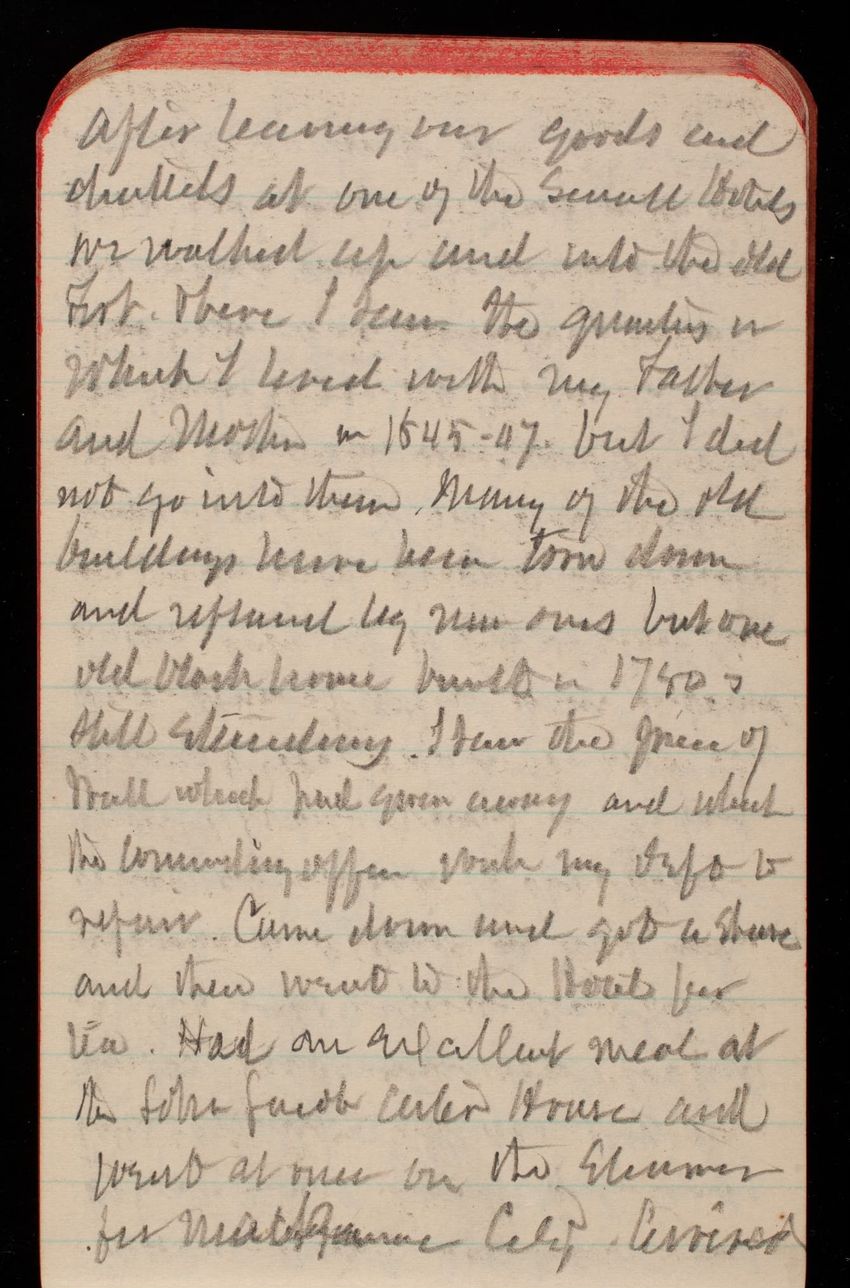 After leaving our goods and
chattels at one of the small Hotels
we walked up and into the old
Fort. There I saw the quarters in
which I lived with my Father
and Mother in 1845-47. but I did
not go into them. Many of the old
buildings have been torn down
and replaced by new ones but one
old block house built in 1780 is
still standing. I saw the piece of
wall which had given away and which
the commanding officer wants my Dept to
repair. Came down and got a shave
and then went to the Hotel for
tea. Had an excellent meal at
the John Jacob Astor House and
went at once on the Steamer
for Mackinac City. Arrived